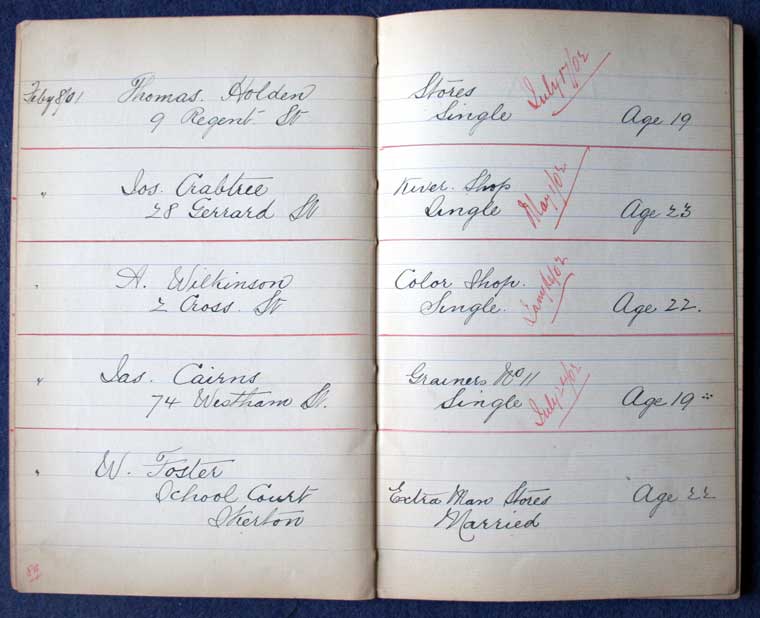 Feby 8/01 Thomas. Holden
9 Regent St
Stores
Single Age 19
July 17/02
" Jos. Crabtree
28 Gerrard St
River. Shop
Single Age 23
May 1/02
" A. Wilkinson
2 Cross. St
Color Shop.
Single. Age 22.
" Jas. Cairns
74 Westham St.
Grainers No 11
Single Age 19
" W. Foster
School Court
Skerton
Extra Man Stores Age 22
Married